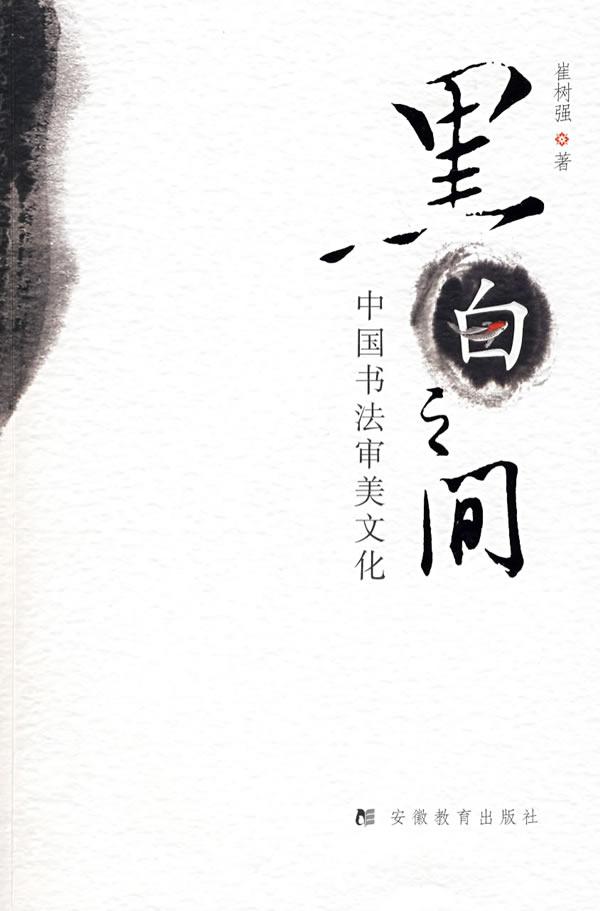 崔树强 著
黑白之间
中国书法审美文化
安徽教育出版社